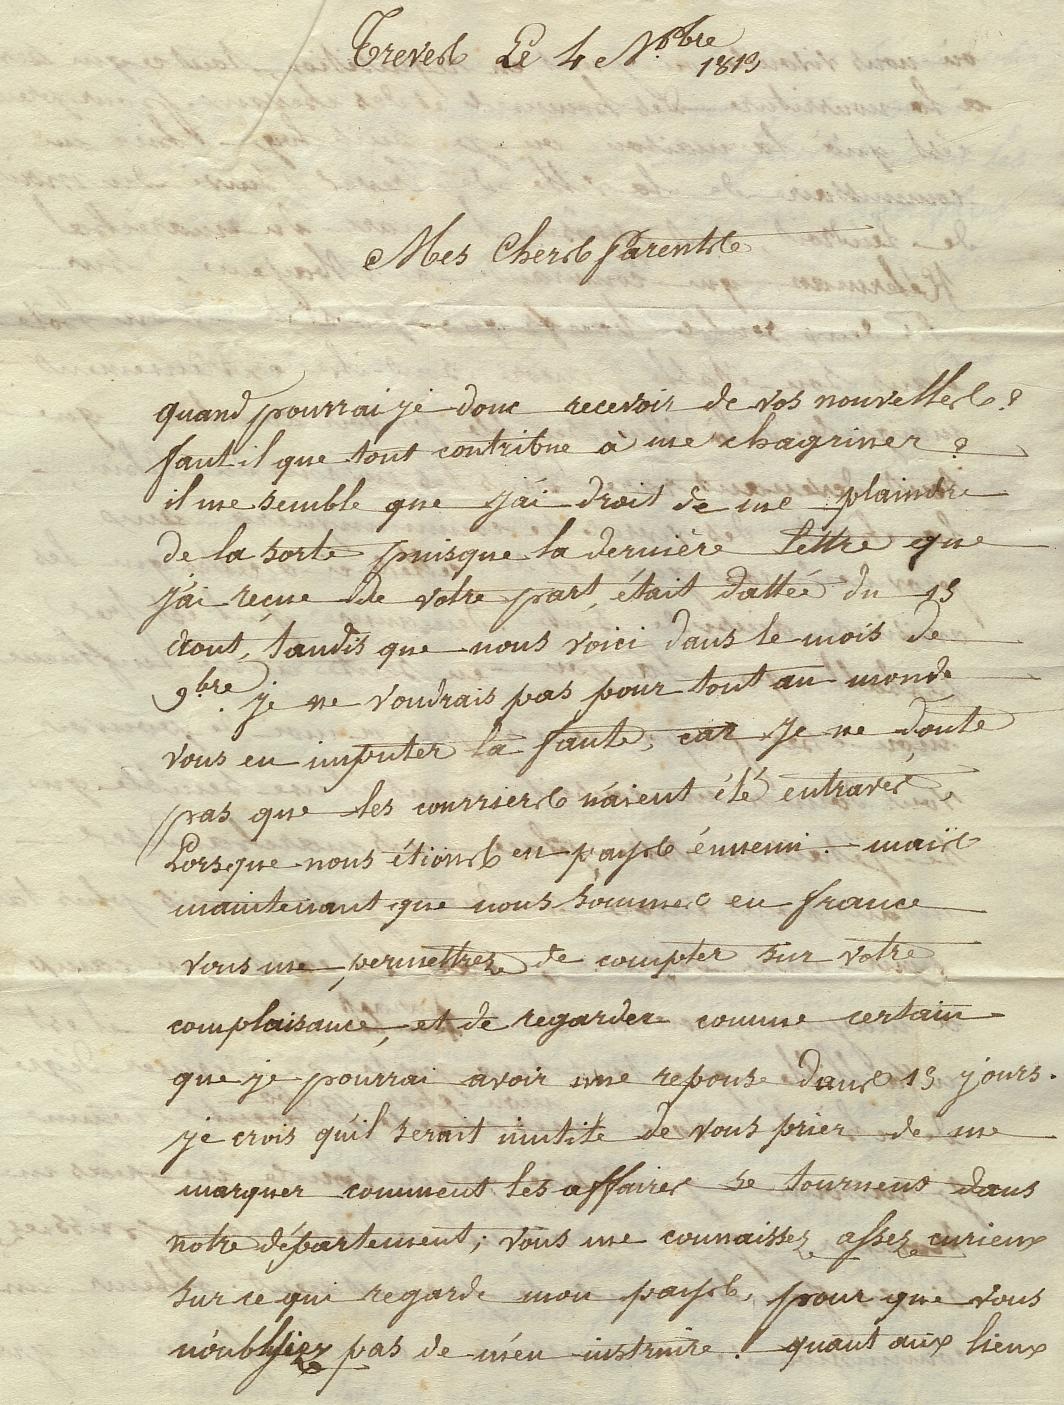 Treves Le 4 Nbre
1813
Mes Chers Parents
quand pourrai je donc recevoir de vos nouvelles ?
faut il que tout contribue à me chagriner ?
il me semble que j'ai droit de me plaindre
de la sorte puisque la dernière lettre que
j'ai reçue de votre part, était dattée du 15
aout, tandis que nous voici dans le mois de
9bre. je ne voudrais pas pour tout au monde
vous en imputer la faute, car je ne doute
pas que les courriers n'aient été entravés,
Lorsque nous étions en pays énnemi. mais
maintenant que nous sommes en france
vous me permettrez de compter sur votre
complaisance, et de regarder comme certain
que je pourrai avoir une reponse dans 15 jours.
je crois qu'il serait inutile de vous prier de me
marquer comment les affaires se tournent dans
notre département ; vous me connaissez assez curieux
sur ce qui regarde mon pays, pour que vous
n'oubliiez pas de m'en instruire. quant aux lieux